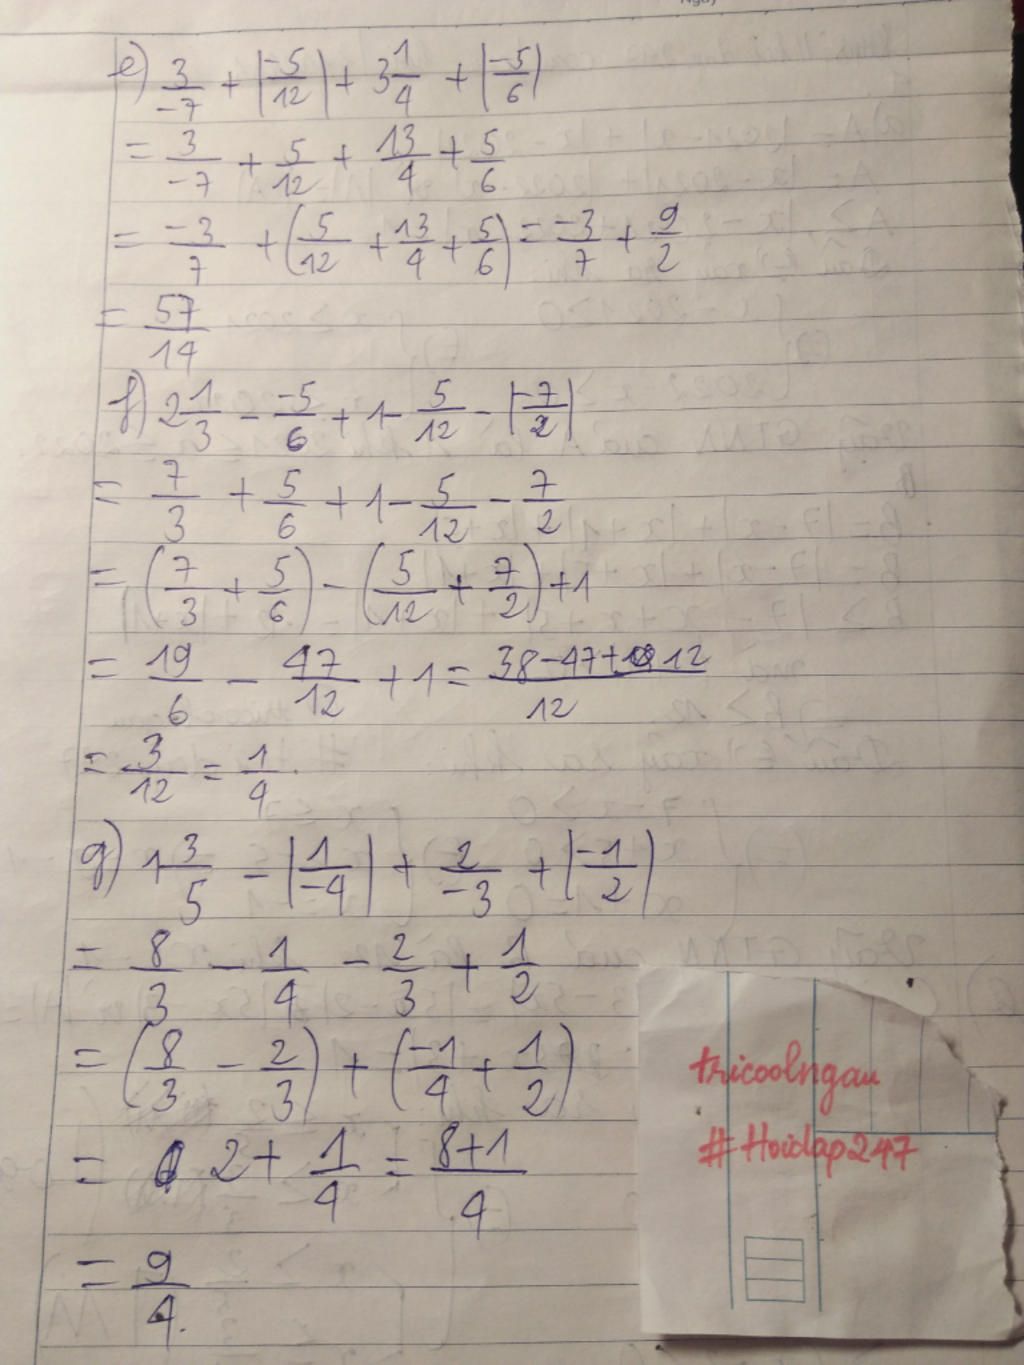 e) 3/-7 + |-5/12| + 3 1/4 + |-5/6|
= 3/-7 + 5/12 + 13/4 + 5/6
= -3/7 + (5/12 + 13/4 + 5/6) = -3/7 + 9/2
= 57/14
f) 2 1/3 - -5/6 + 1 - 5/12 - |-7/2|
= 7/3 + 5/6 + 1 - 5/12 - 7/2
= (7/3 + 5/6) - (5/12 + 7/2) + 1
= 19/6 - 47/12 + 1 = 38-47+12/12
= 3/12 = 1/4.
g) 1 3/5 - |1/-4| + 2/-3 + |-1/2|
= 8/3 - 1/4 - 2/3 + 1/2
= (8/3 - 2/3) + (-1/4 + 1/2)
= 2 + 1/4 = 8+1/4
= 9/4.
tricoolngau
#Hoidap247